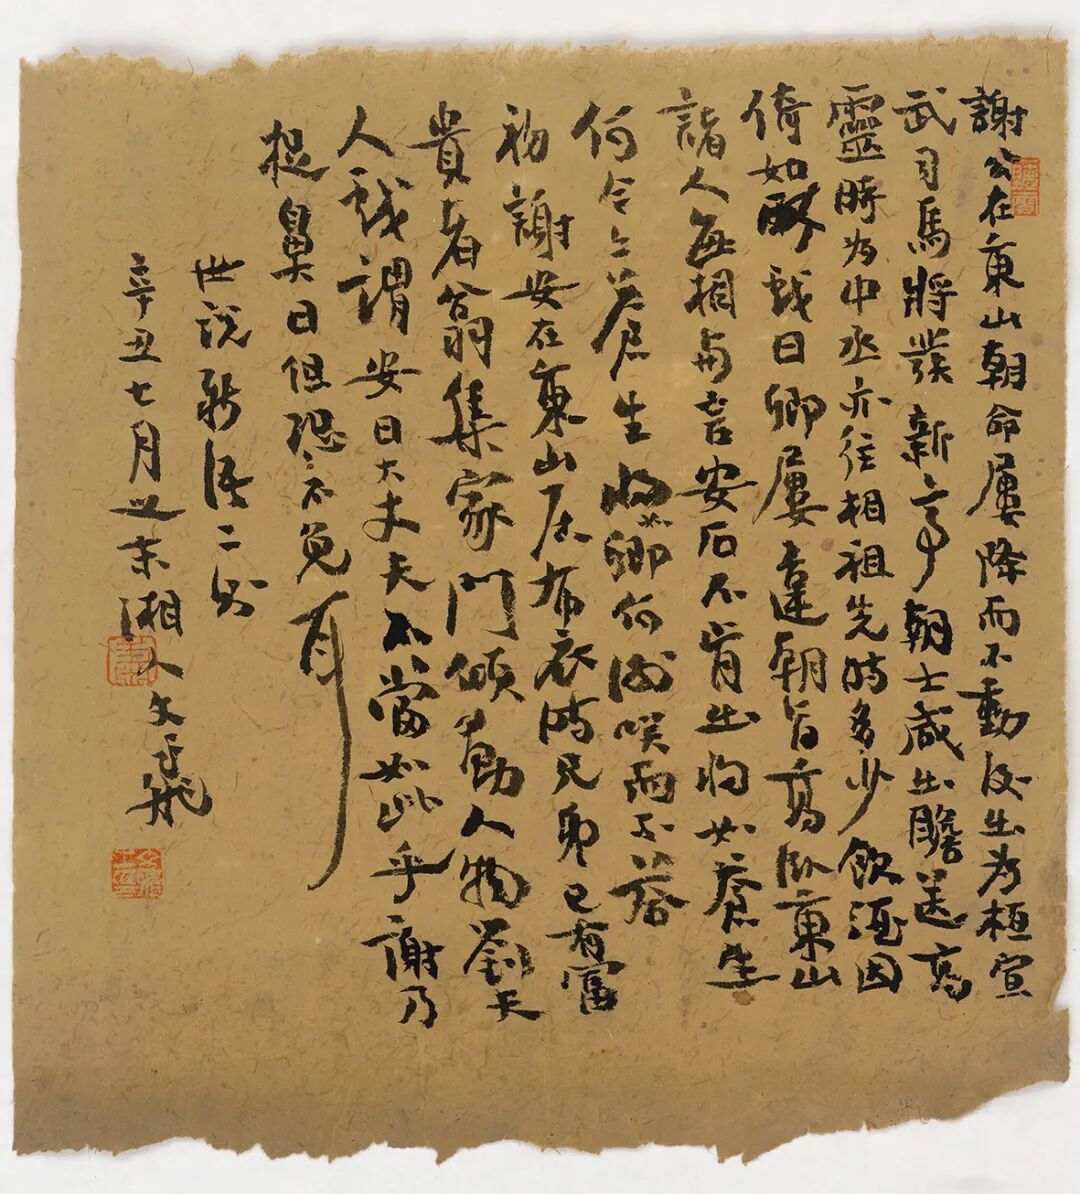 謝公在東山朝命屢降而不動後出為桓宣
武司馬將發新亭朝士咸出瞻送高
靈時為中丞亦往相祖先時多少飲酒因
倚如醉戲曰卿屢違朝旨高臥東山
諸人每相與言安石不肯出將如蒼生
何今亦蒼生將如卿何謝咲而不荅
初謝安在東山居布衣時兄弟已有富
貴者翁集家門傾動人物劉夫
人戲謂安曰大丈夫不當如此乎謝乃
捉鼻曰但恐不免耳
世說新語二則
辛丑七月之末湘人文飛